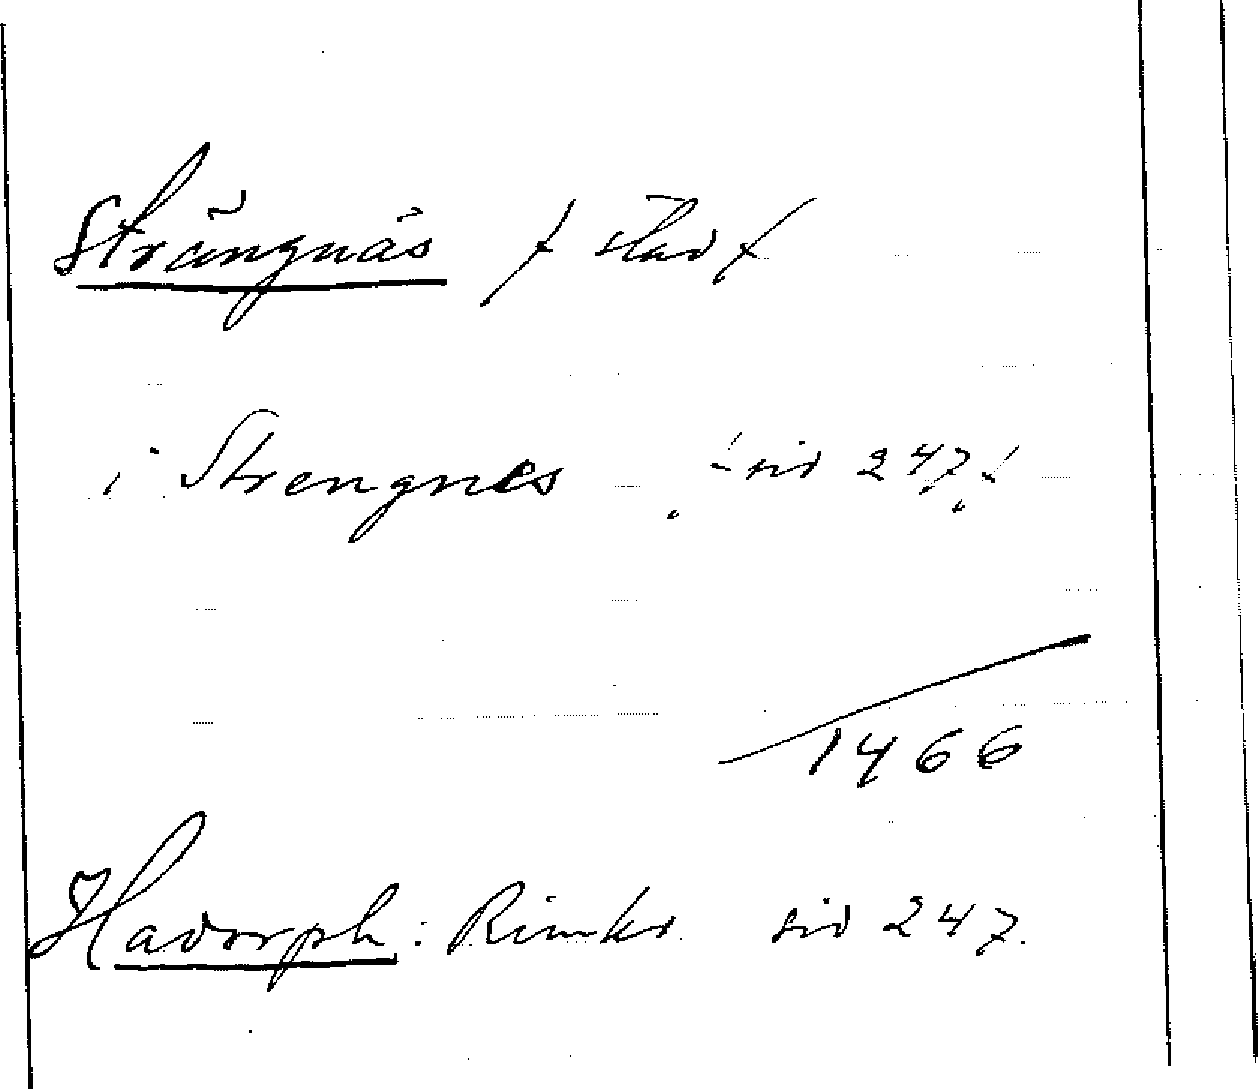 Strängnäs / stad /
i Strengnes /: sid 247 :/
1466
Hadorph: Rimkr. sid 247.